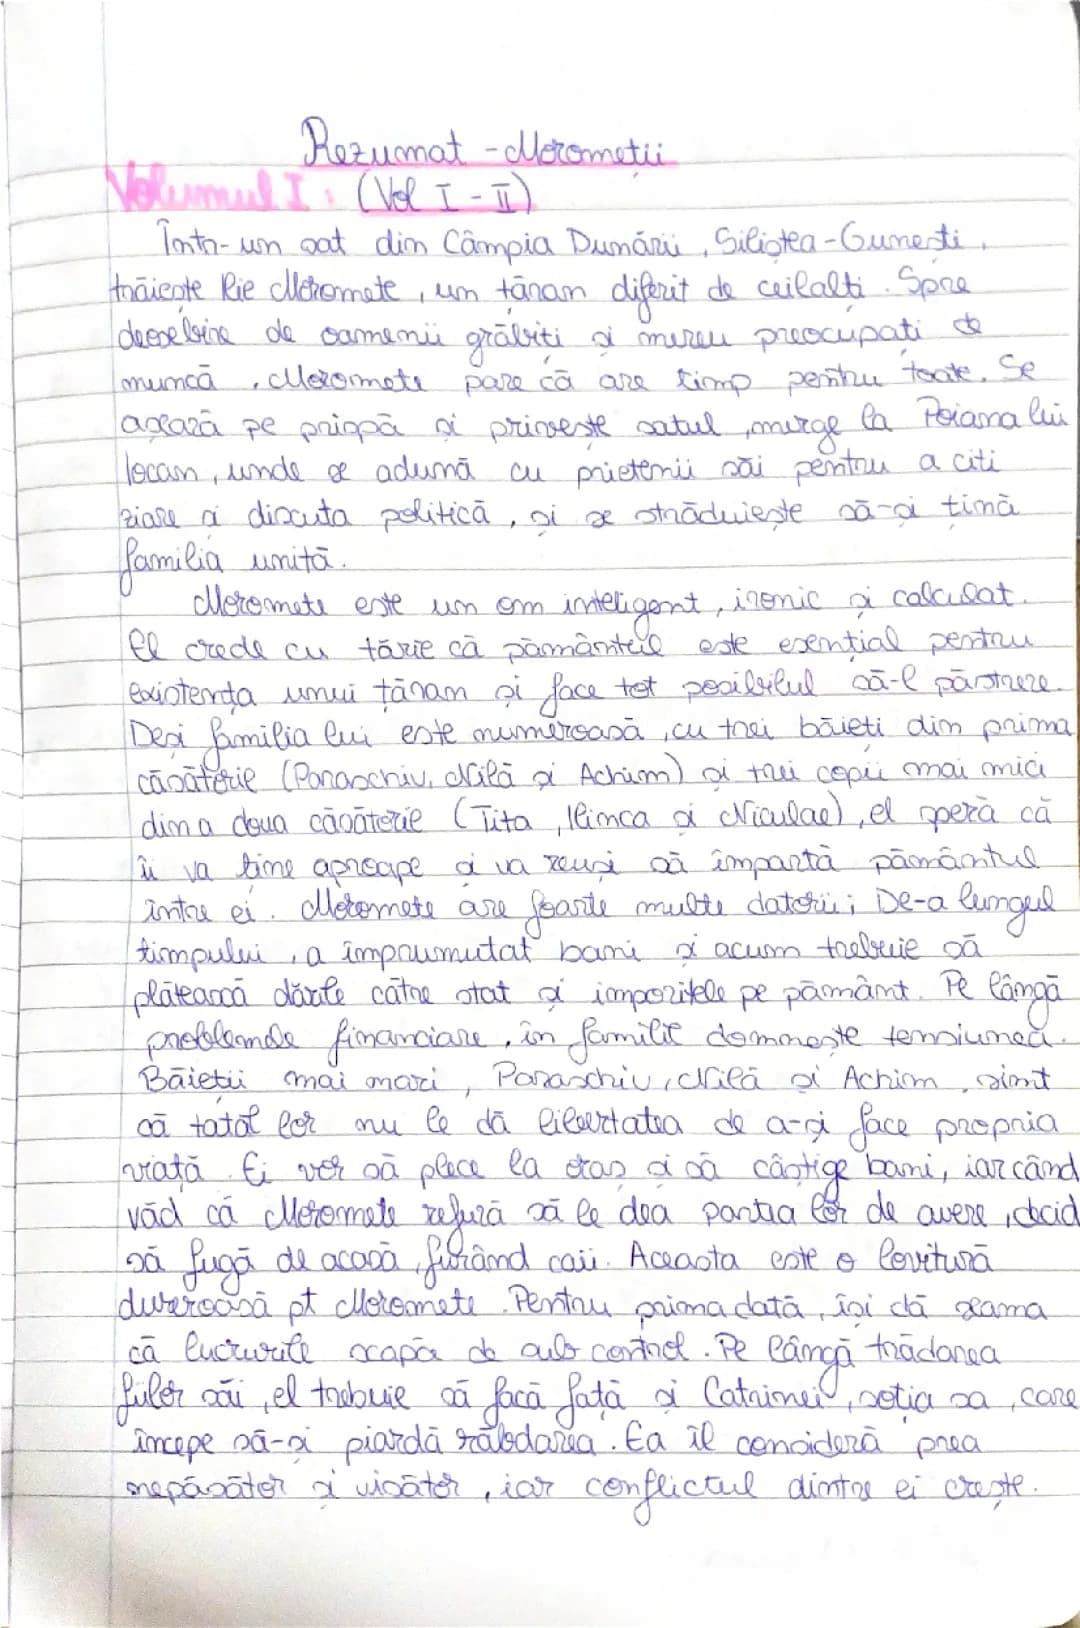 Rezumat - Moromeții
Volumul I: (Vol I - II)
Într-un sat din Câmpia Dunării, Siliștea-Gumești,
trăiește Ilie Moromete, un țăran diferit de ceilalți. Spre
deosebire de oamenii grăbiți și mereu preocupați de
muncă, Moromete pare că are timp pentru toate. Se
așază pe prispă și privește satul, merge la Poiana lui
Iocan, unde se adună cu prietenii săi pentru a citi
ziare și discuta politică, și se străduiește să-și țină
familia unită.
Moromete este un om inteligent, ironic și calculat.
El crede cu tărie că pământul este esențial pentru
existența unui țăran și face tot posibilul să-l păstreze.
Deși familia lui este numeroasă, cu trei băieți din prima
căsătorie (Paraschiv, Nilă și Achim) și trei copii mai mici
din a doua căsătorie (Tita, Ilinca și Niculae), el speră că
îi va ține aproape și va reuși să împartă pământul
între ei. Moromete are foarte multe datorii; De-a lungul
timpului, a împrumutat bani și acum trebuie să
plătească dările către stat și impozitele pe pământ. Pe lângă
problemele financiare, în familie domnește tensiunea.
Băieții mai mari, Paraschiv, Nilă și Achim, simt
că tatăl lor nu le dă libertatea de a-și face propria
viață. Ei vor să plece la oraș și să câștige bani, iar când
văd că Moromete refuză să le dea partea lor de avere, decid
să fugă de acasă, furând caii. Aceasta este o lovitură
dureroasă pt Moromete. Pentru prima dată, își dă seama
că lucrurile scapă de sub control. Pe lângă trădarea
fiilor săi, el trebuie să facă față și Catrinei, soția sa, care
începe să-și piardă răbdarea. Ea îl consideră prea
nepăsător și visător, iar conflictul dintre ei crește.